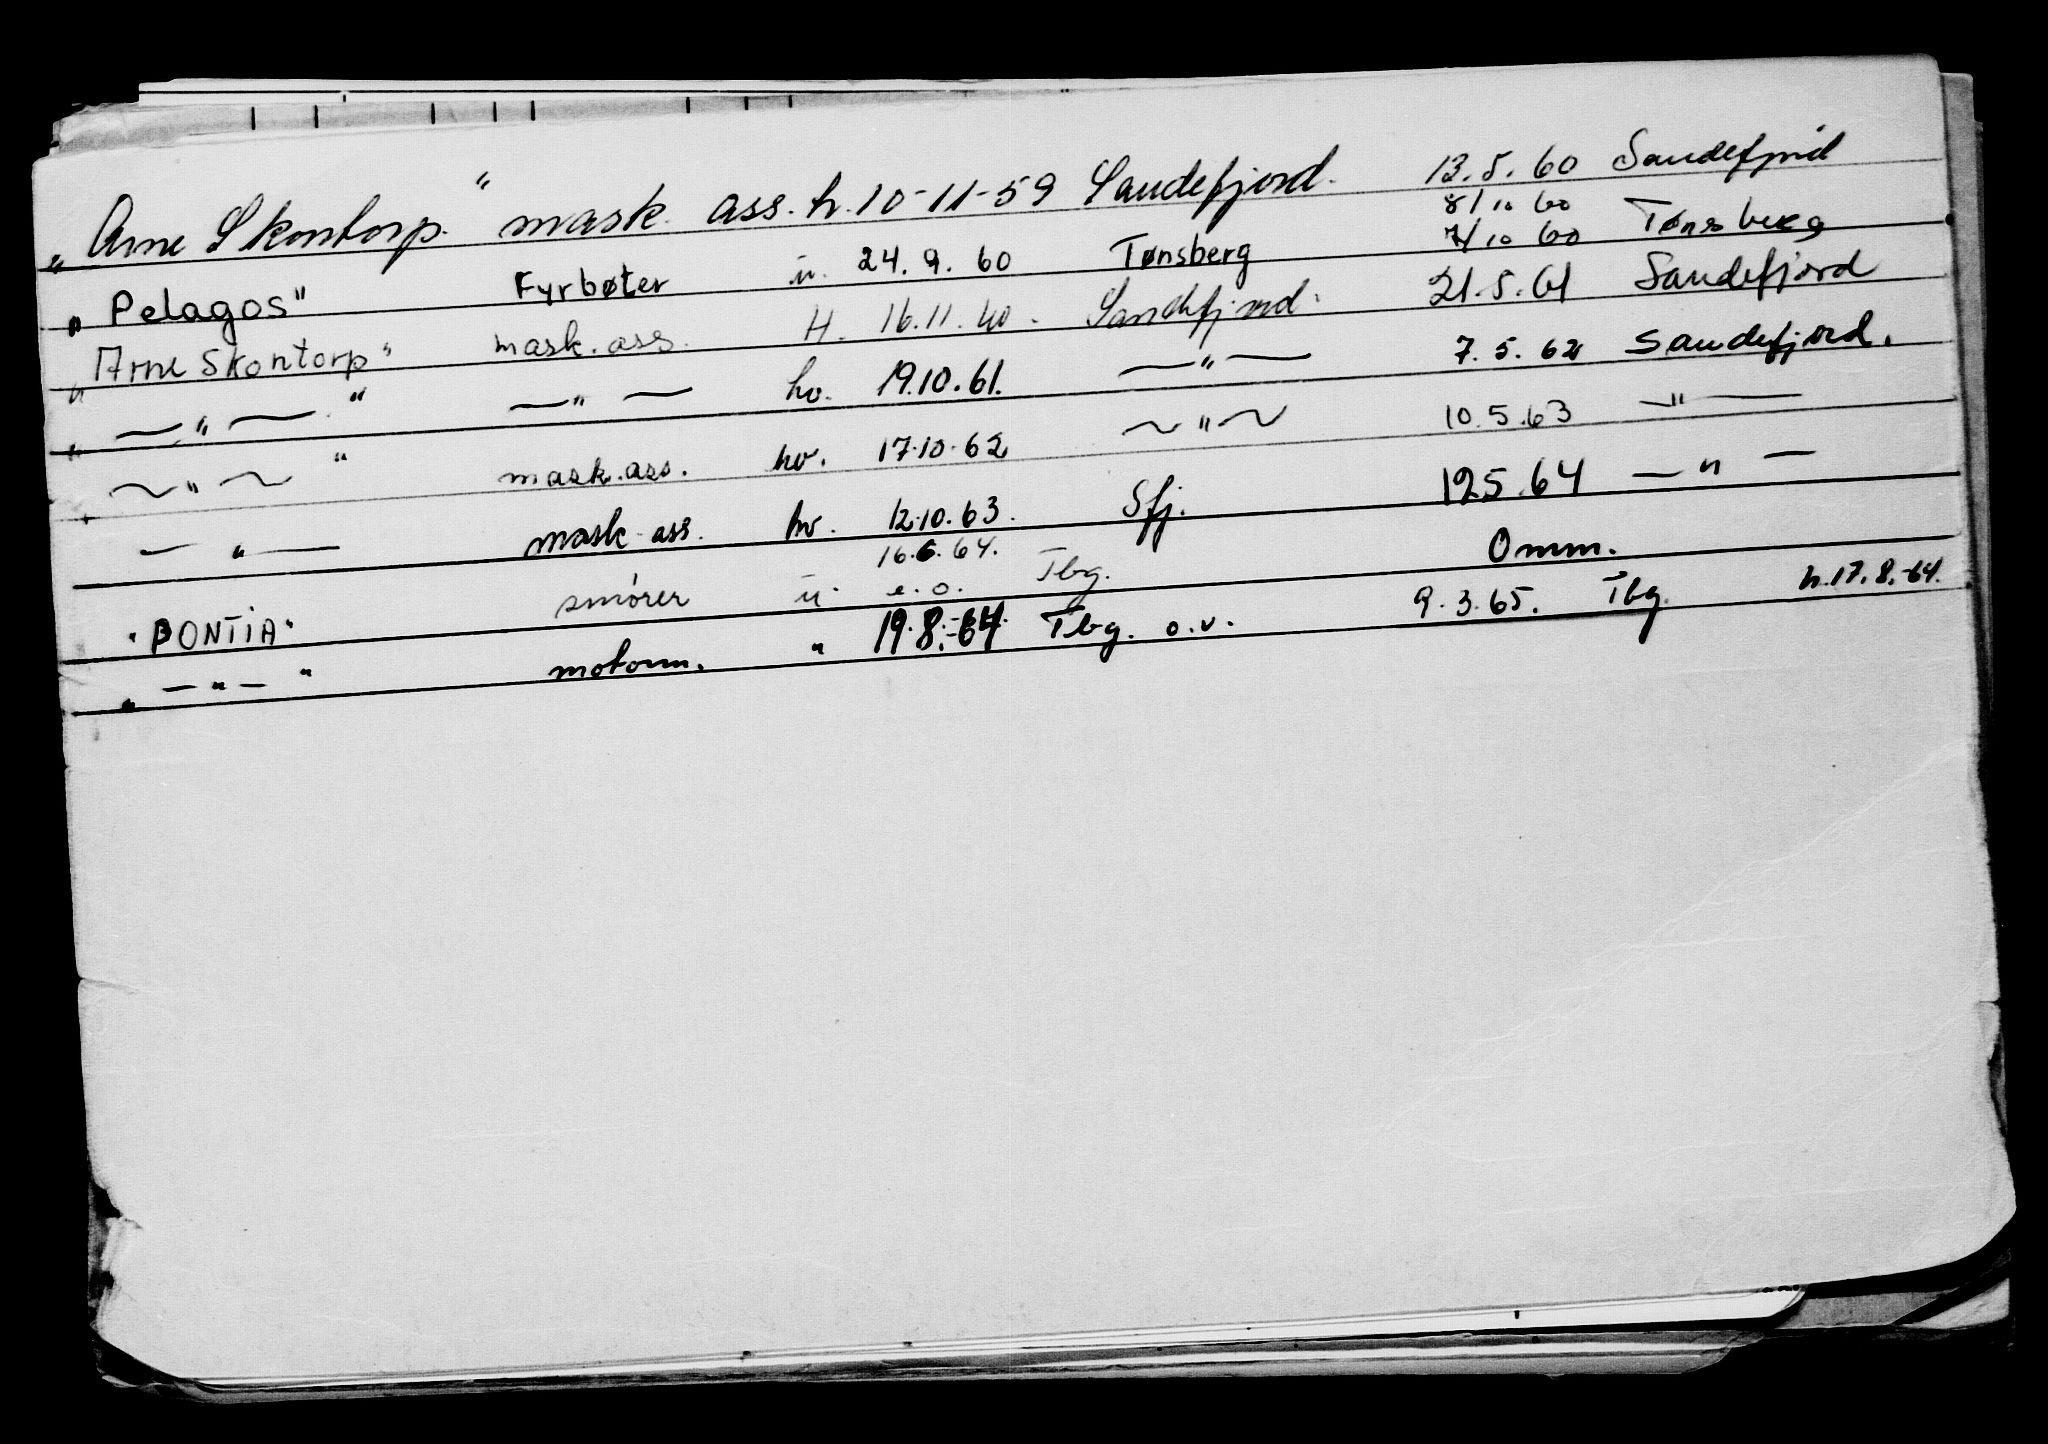 „ Arne Skontorp. " mask. ass. h. 10-11-59 Sandefjord. 13.5.60 Sandefjord
8/10 60
„ Pelagos" Fyrbøter u. 24.9.60 Tønsberg 7/10 60 Tønsberg
„ Arne Skontorp" mask. ass. H. 16.11.60. Sandefjord. 21.5.61 Sandefjord
„ — " — " — " — hv. 19.10.61. — " — 7.5.62 Sandefjord.
„ ~ " ~ " mask. ass. hv. 17.10.62 ~ " ~ 10.5.63 — " —
— " — mask. ass. hv. 12.10.63. Sfj. 12.5.64 — " —
16.6.64. Omm.
" PONTIA" smører u. e.o. Tbg.
„ — " — " motorm. " 19.8.-64 Tbg. o.v. 9.3.65. Tbg. h.17.8.-64.